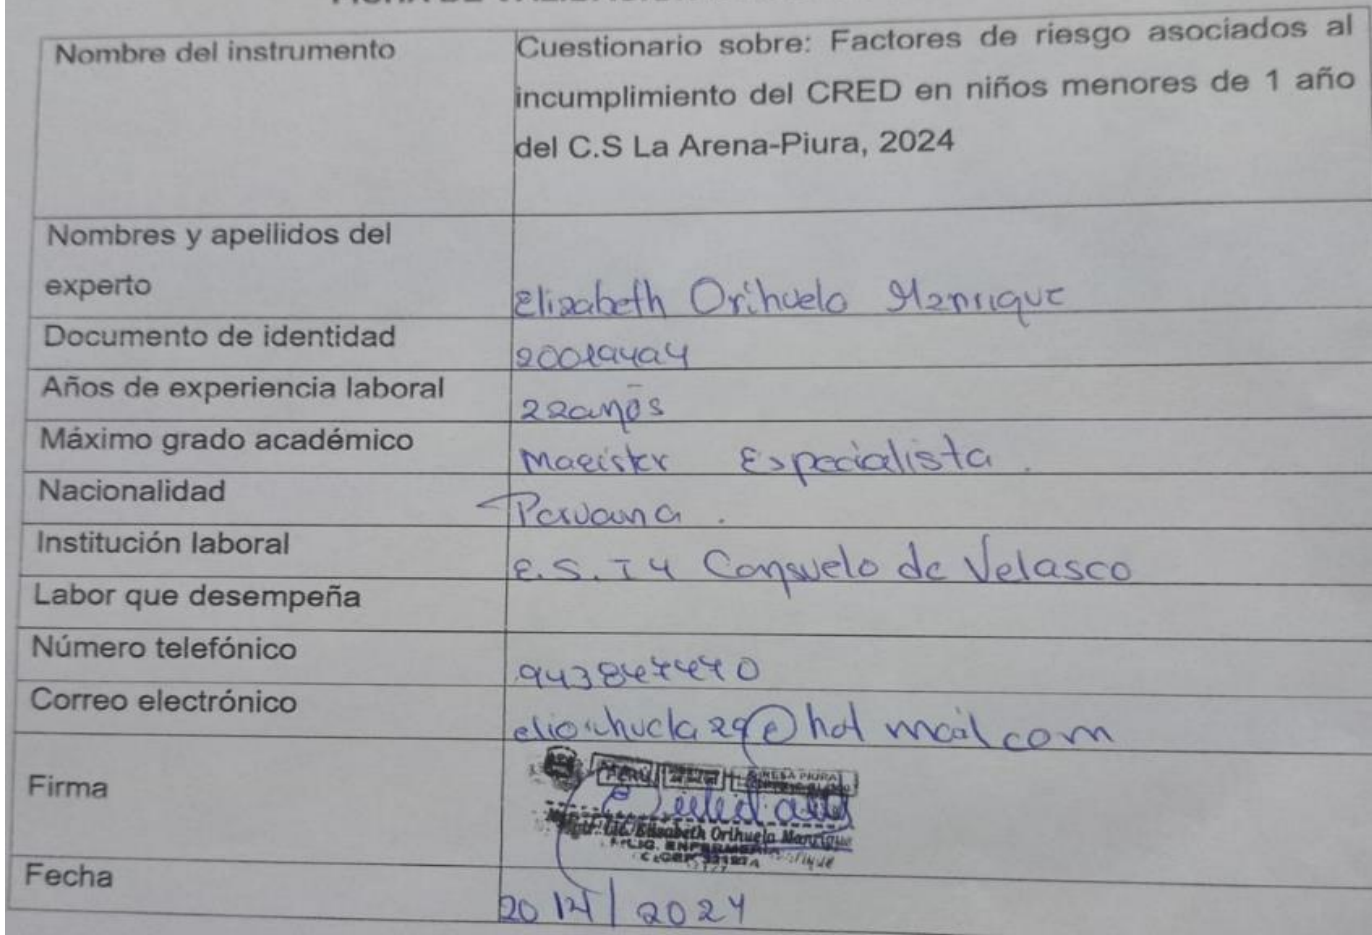 Nombre del instrumento
Cuestionario sobre: Factores de riesgo asociados al
incumplimiento del CRED en niños menores de 1 año
del C.S La Arena-Piura, 2024
Nombres y apellidos del
experto
Elizabeth Orihuela Manrique
Documento de identidad
Años de experiencia laboral
22años
Máximo grado académico
Magister Especialista.
Nacionalidad
Peruana.
Institución laboral
E.S. I4 Consuelo de Velasco
Labor que desempeña
Número telefónico
943847470
Correo electrónico
eliorihuela29@hotmail.com
Firma
PERÚ
Lic. Elisabeth Orihuela Manrique
LIC. ENFERMERIA
Fecha
2024